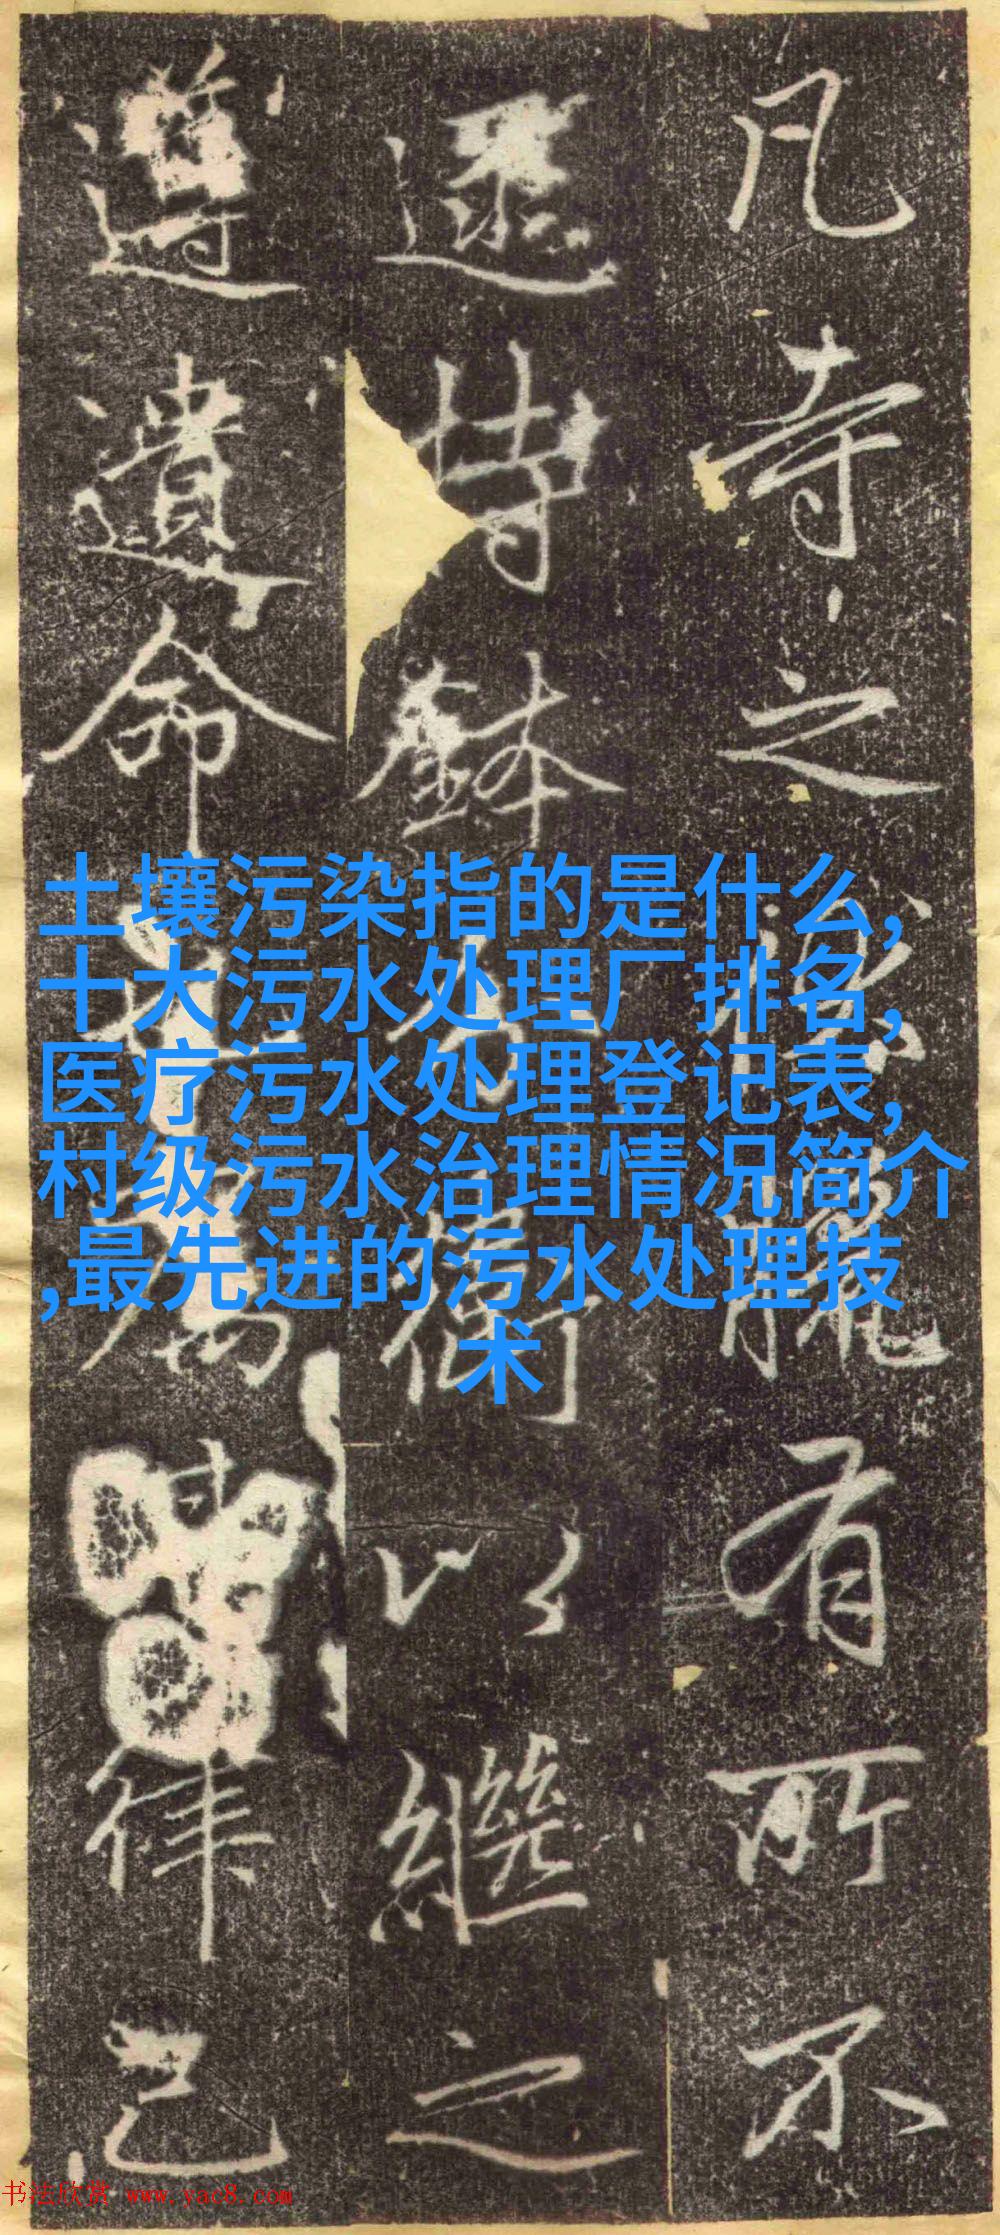 土壤污染指的是什么,
十大污水处理厂排名,
医疗污水处理登记表,
村级污水治理情况简介
,最先进的污水处理技
术
凡寺之
有所不
持鉢
以繼之
遵遺命
律己
书法欣赏 www.yac8.com